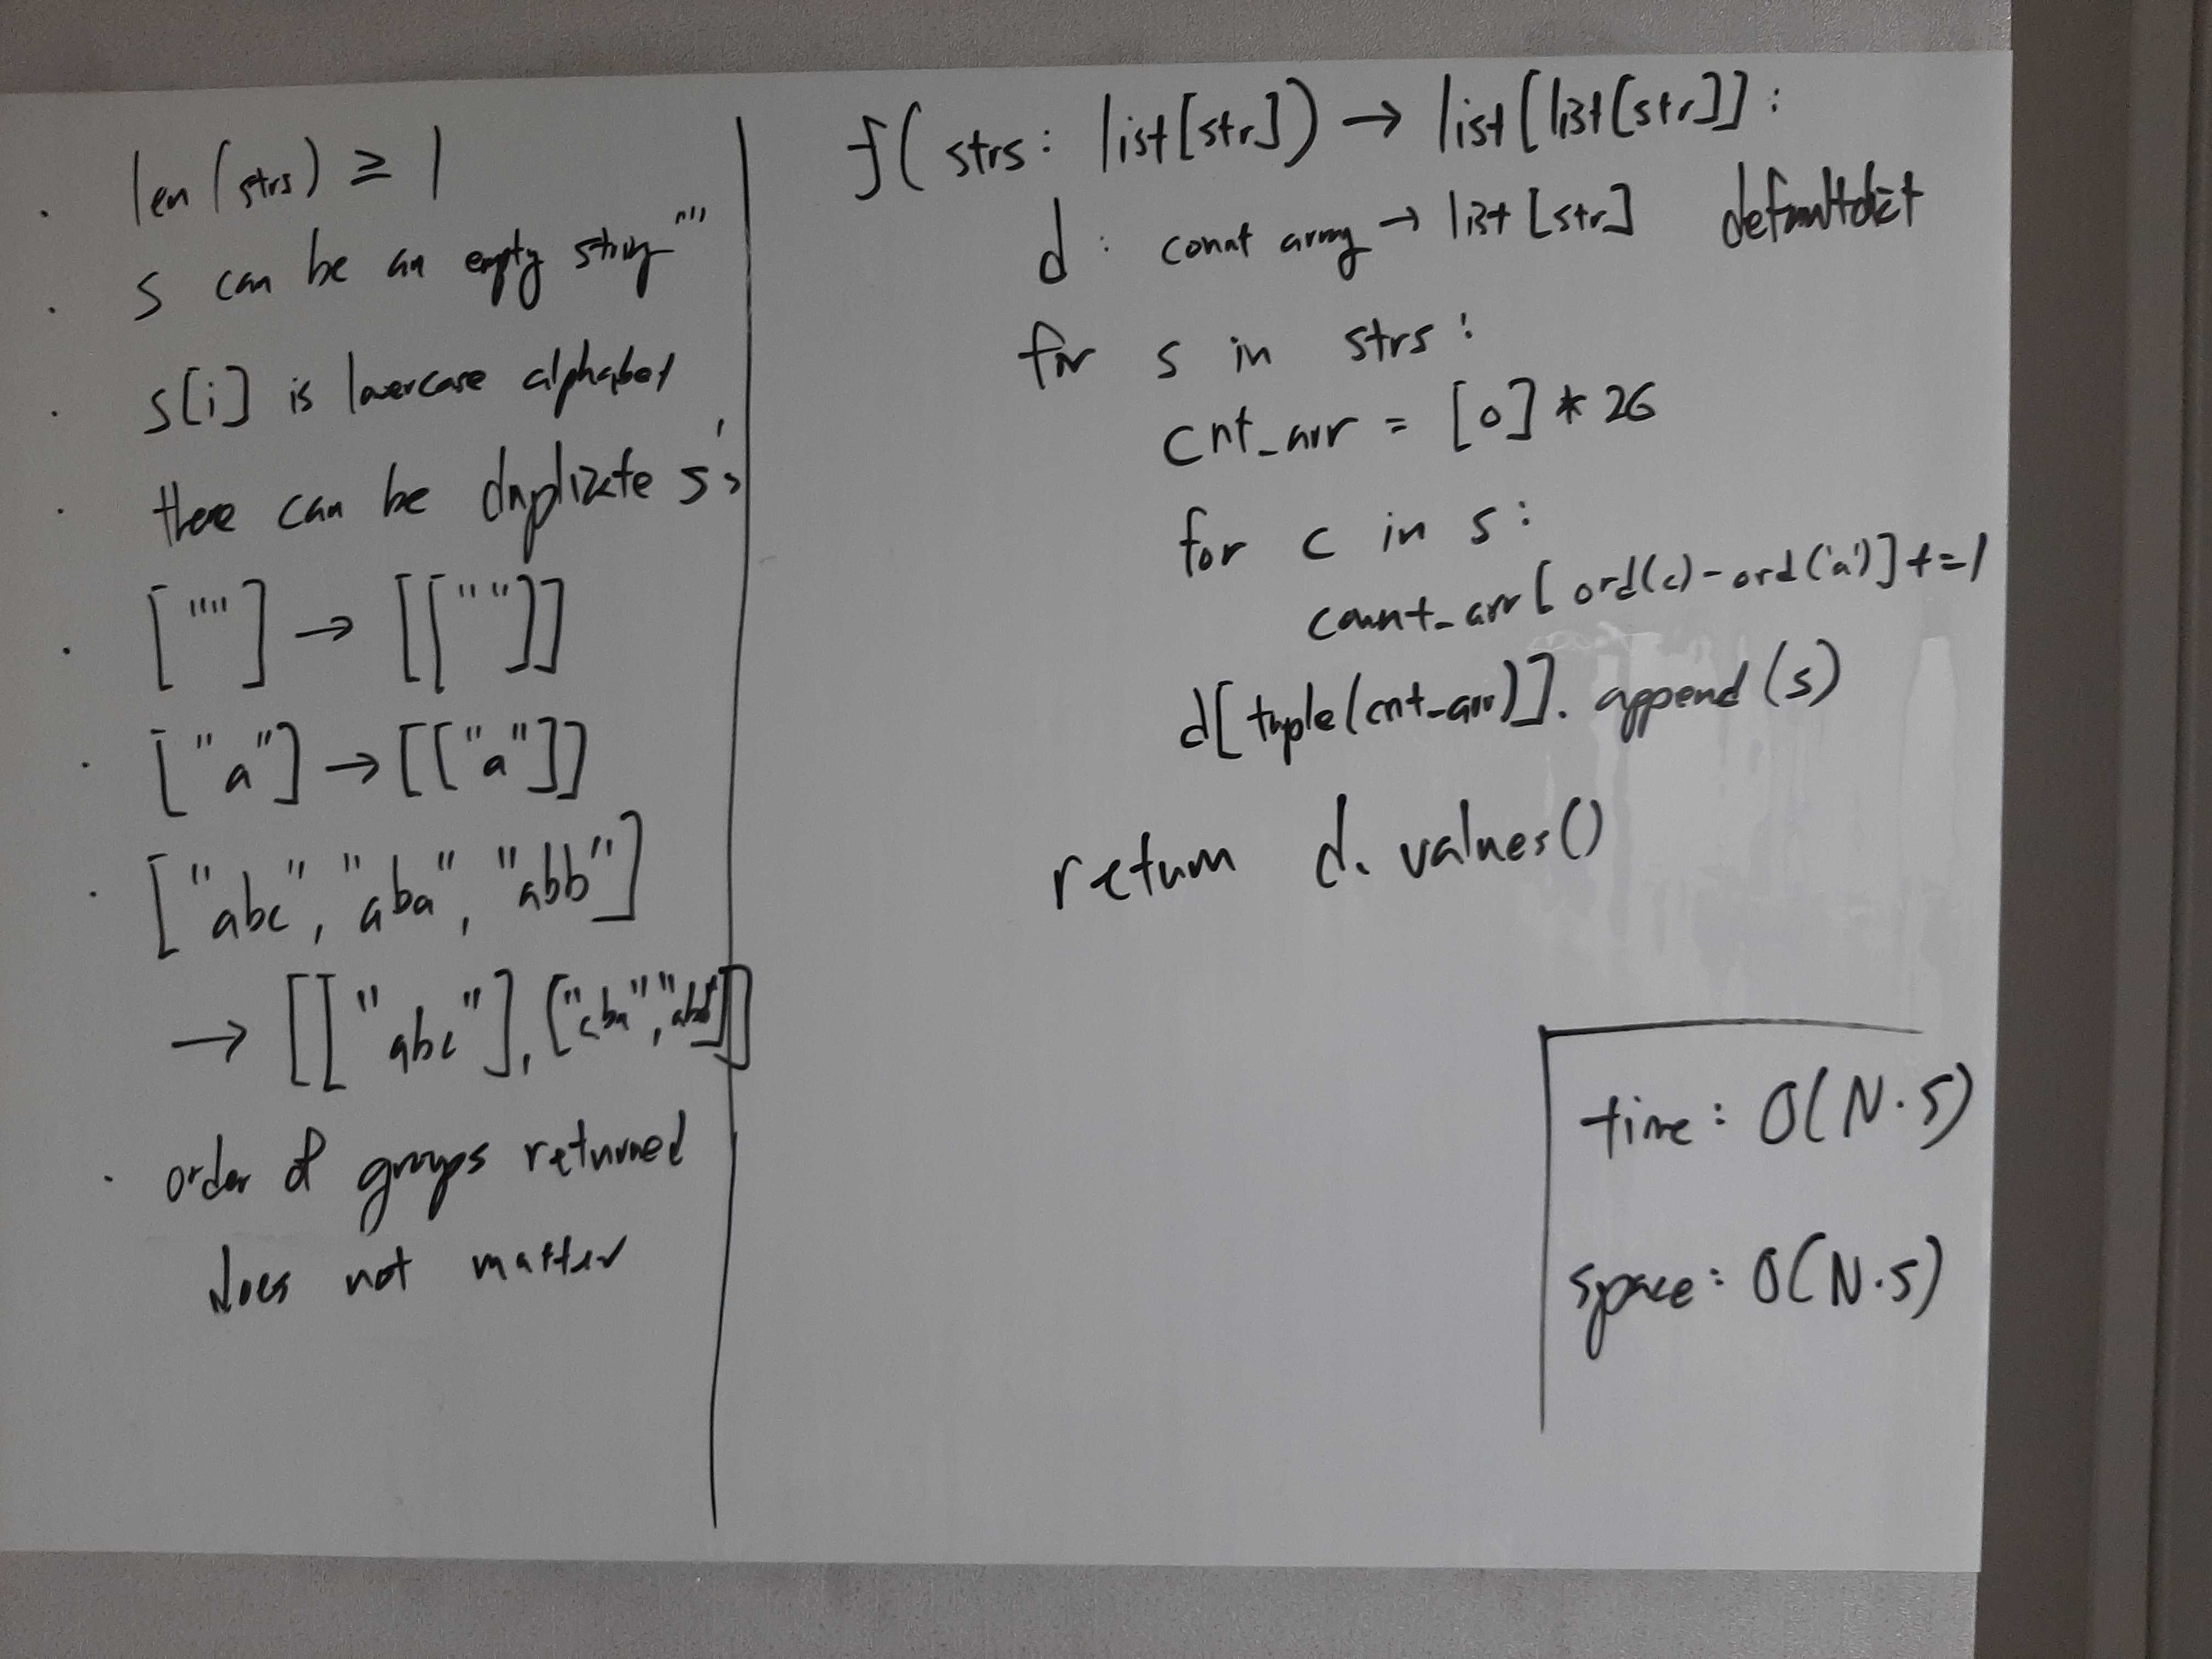 · len(strs) ≥ 1
· s can be an empty string ""
· s[i] is lowercase alphabet
· there can be duplicate s's
· [""] → [[""]]
· ["a"] → [["a"]]
· ["abc", "aba", "abb"]
→ [["abc"], ["aba", "abb"]]
· order of groups returned
does not matter
f(strs: list[str]) → list[list[str]]:
d: count array → list[str] defaultdict
for s in strs:
cnt_arr = [0] * 26
for c in s:
count_arr[ord(c)-ord('a')] += 1
d[tuple(cnt_arr)].append(s)
return d.values()
time: O(N·S)
space: O(N·S)